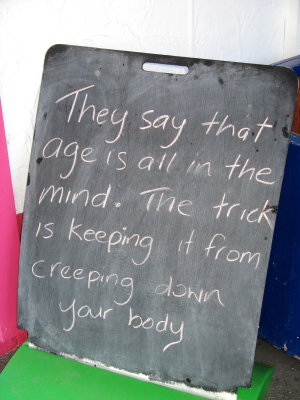 They say that
age is all in the
mind. The trick
is keeping it from
creeping down
your body